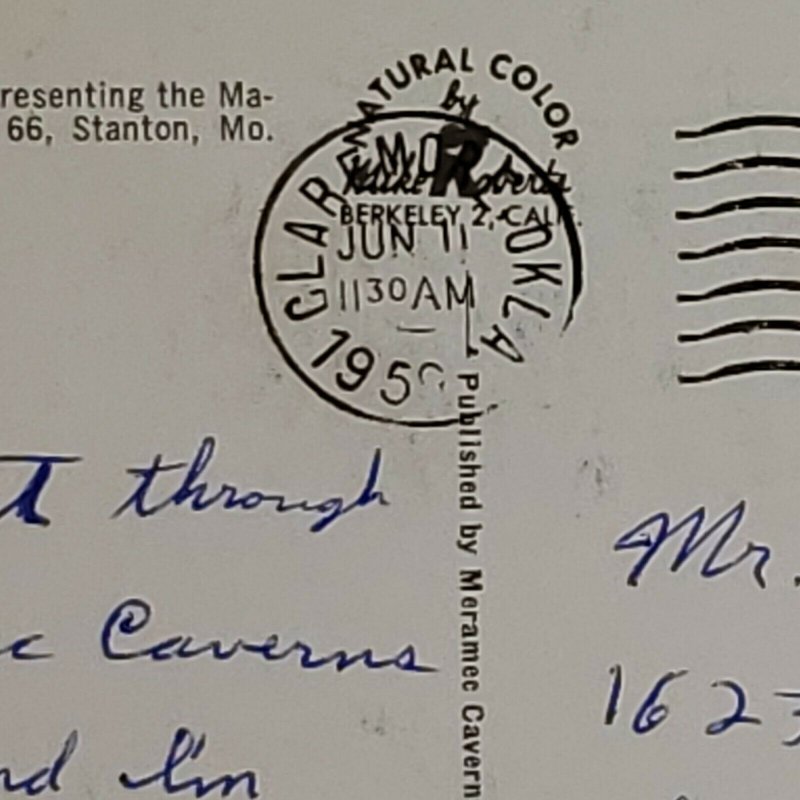 resenting the Ma-
66, Stanton, Mo.
NATURAL COLOR
by
Mike Roberts
BERKELEY 2, CALIF.
CLAREMORE OKLA
JUN 11
1130 AM
195
Published by Meramec Cavern
through
c Caverns
nd I'm
Mr.
1623